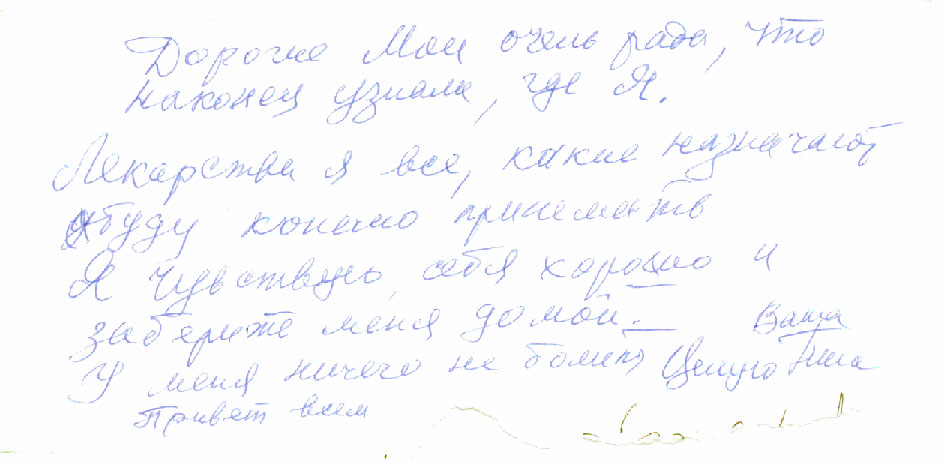 Дорогие Мои очень рада, что
наконец узнала, где Я.
Лекарства я все, какие назначают
буду конечно принемать
Я чувствую, себя хорошо и
заберите меня домой. Ваша
У меня ничего не болит Целую
Привет всем